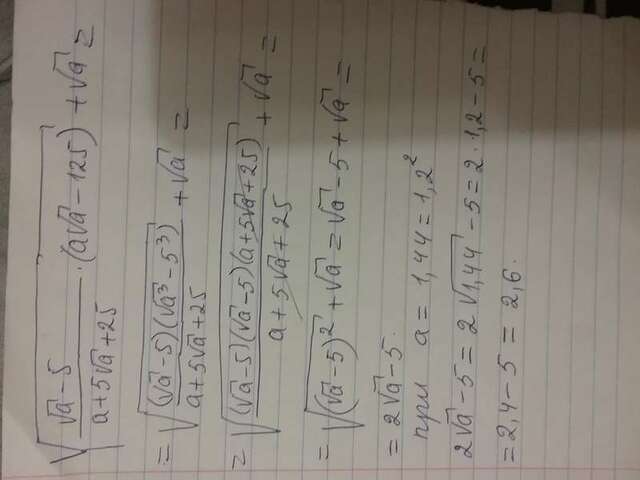 √((√a - 5)/(a + 5√a + 25) · (a√a - 125)) + √a =
= √((√a - 5)(√a³ - 5³)/(a + 5√a + 25)) + √a =
= √((√a - 5)(√a - 5)(a + 5√a + 25)/(a + 5√a + 25)) + √a =
= √((√a - 5)²) + √a = √a - 5 + √a =
= 2√a - 5.
при a = 1,44 = 1,2²
2√a - 5 = 2√1,44 - 5 = 2 · 1,2 - 5 =
= 2,4 - 5 = 2,6.